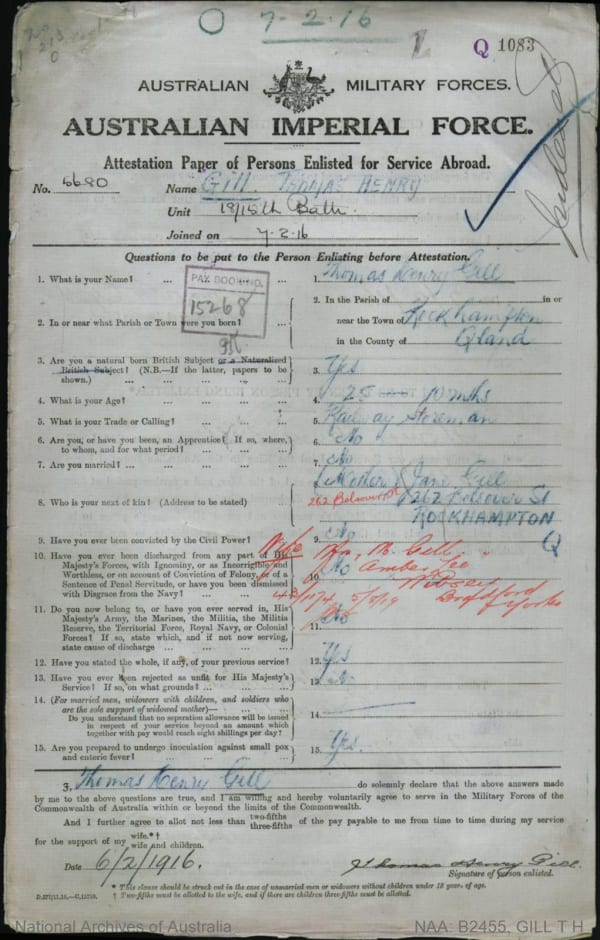 7-2-16
Q 1083
AUSTRALIAN MILITARY FORCES.
AUSTRALIAN IMPERIAL FORCE.
Attestation Paper of Persons Enlisted for Service Abroad.
No. 5680 Name Gill. Thomas HENRY
Unit 18/15th Batn.
Joined on 7-2-16
Questions to be put to the Person Enlisting before Attestation.
PAY BOOK NO.
15268
1. What is your Name? ... ... 1. Thomas Henry Gill
2. In or near what Parish or Town were you born? ... 2. In the Parish of in or
near the Town of Rockhampton
in the County of Qland
3. Are you a natural born British Subject or a Naturalized
British Subject? (N.B.—If the latter, papers to be
shown.) ... 3. Yes
4. What is your Age? ... 4. 25 10 mths
5. What is your Trade or Calling? ... 5. Railway Storeman
6. Are you, or have you been, an Apprentice? If so, where,
to whom, and for what period? ... 6. No
7. Are you married? ... 7. No
8. Who is your next of kin? (Address to be stated) ... 8. (Mother) Jane Gill
262 Bolsover St
ROCKHAMPTON
9. Have you ever been convicted by the Civil Power? 9. No
Wife Mrs. M. Gill
10. Have you ever been discharged from any part of His
Majesty's Forces, with Ignominy, or as Incorrigible and
Worthless, or on account of Conviction of Felony, or of a
Sentence of Penal Servitude, or have you been dismissed
with Disgrace from the Navy? 10. No
Bradford
Yorks
11. Do you now belong to, or have you ever served in, His
Majesty's Army, the Marines, the Militia, the Militia
Reserve, the Territorial Force, Royal Navy, or Colonial
Forces? If so, state which, and if not now serving,
state cause of discharge ... 11. No
12. Have you stated the whole, if any, of your previous service? 12. Yes
13. Have you ever been rejected as unfit for His Majesty's
Service? If so, on what grounds? ... 13. No
14. (For married men, widowers with children, and soldiers who
are the sole support of widowed mother)—
Do you understand that no separation allowance will be issued
in respect of your service beyond an amount which
together with pay would reach eight shillings per day? 14.
15. Are you prepared to undergo inoculation against small pox
and enteric fever? ... 15. Yes.
I, Thomas Henry Gill do solemnly declare that the above answers made
by me to the above questions are true, and I am willing and hereby voluntarily agree to serve in the Military Forces of the
Commonwealth of Australia within or beyond the limits of the Commonwealth.
And I further agree to allot not less than two-fifths
three-fifths of the pay payable to me from time to time during my service
for the support of my wife.*†
wife and children.
Date 6/2/1916. Thomas Henry Gill.
Signature of person enlisted.
* This clause should be struck out in the case of unmarried men or widowers without children under 18 years of age.
† Two-fifths must be allotted to the wife, and if there are children three-fifths must be allotted.
National Archives of Australia NAA: B2455, GILL T H